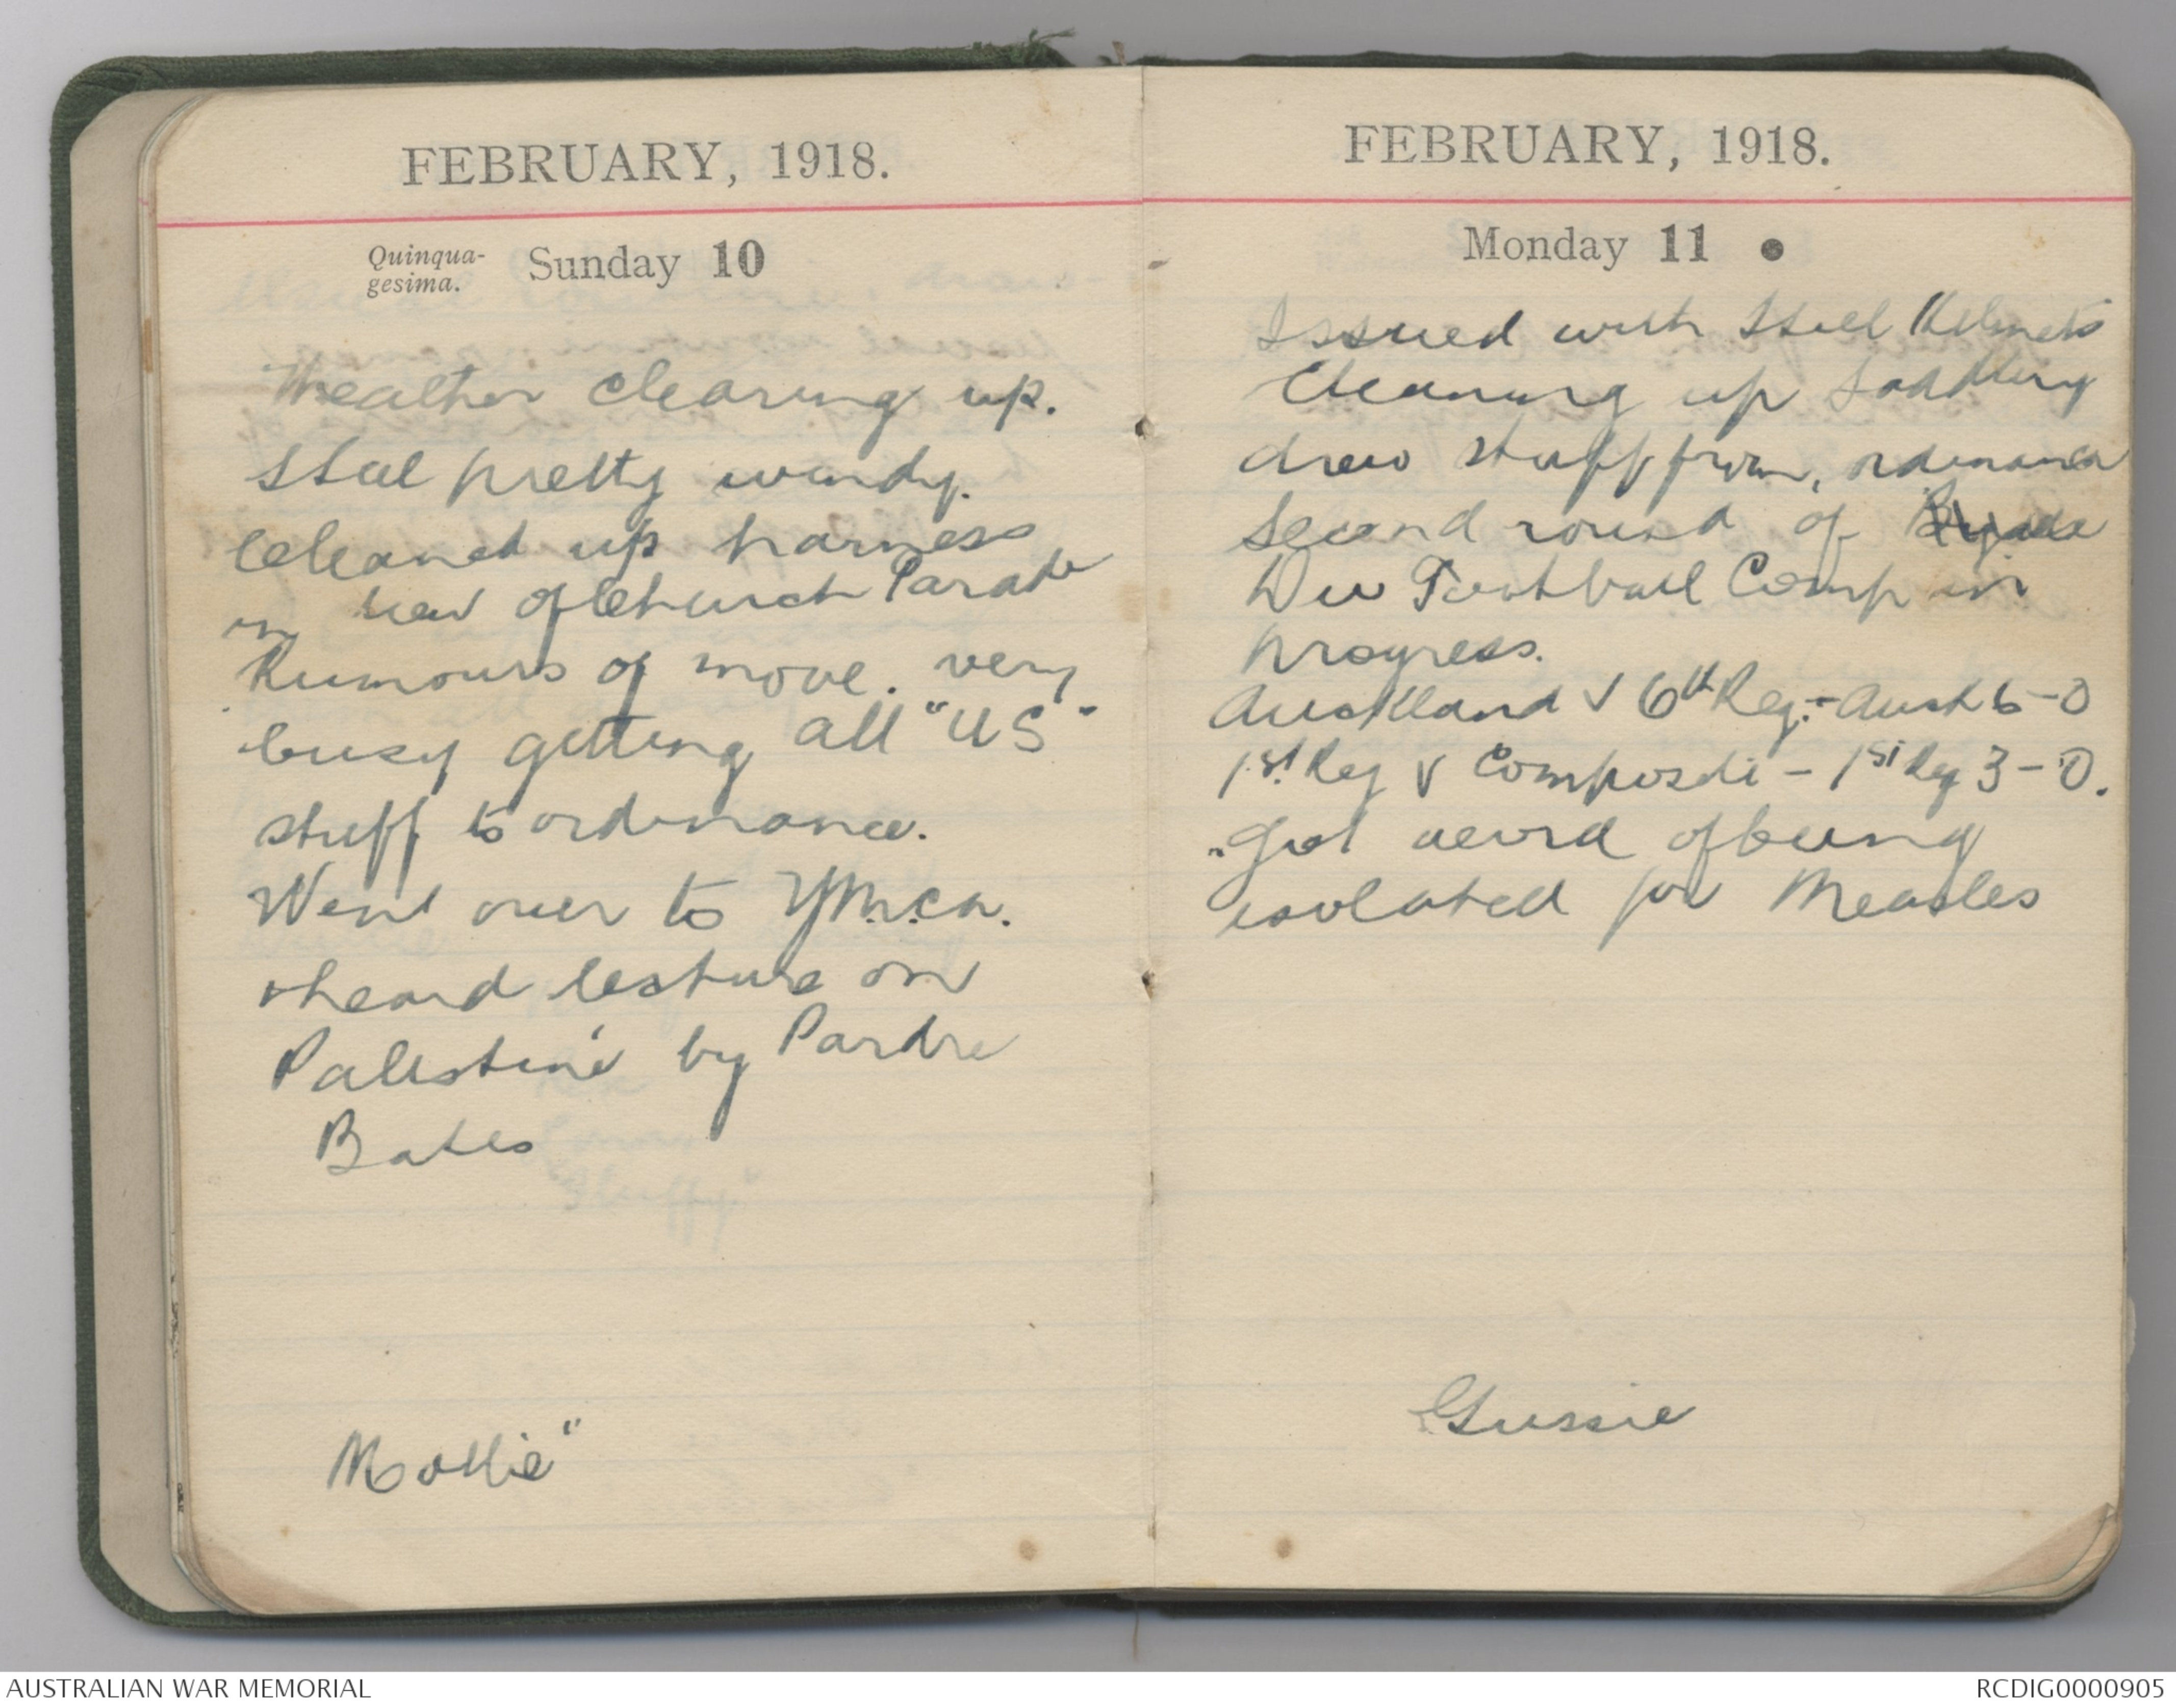 FEBRUARY, 1918.
Quinqua-
gesima. Sunday 10
Weather clearing up.
Still pretty windy.
Cleaned up harness
in lieu of Church Parade
Rumours of move. very
busy getting all "US"
stuff to ordinance.
Went over to Y.M.C.A.
& heard lecture on
Palestine by Pardre
Bates
Mollie"
FEBRUARY, 1918.
Monday 11
Issued with Steel Helmets
Cleaning up Saddlery
drew stuff from, ordinance
Second round of
Div Football Comp in
progress.
Auckland V 6th Reg:- Auck 6-0
1st Reg V Composite - 1st Reg 3-0.
Got word of being
isolated for Measles
Gussie
AUSTRALIAN WAR MEMORIAL
RCDIG0000905